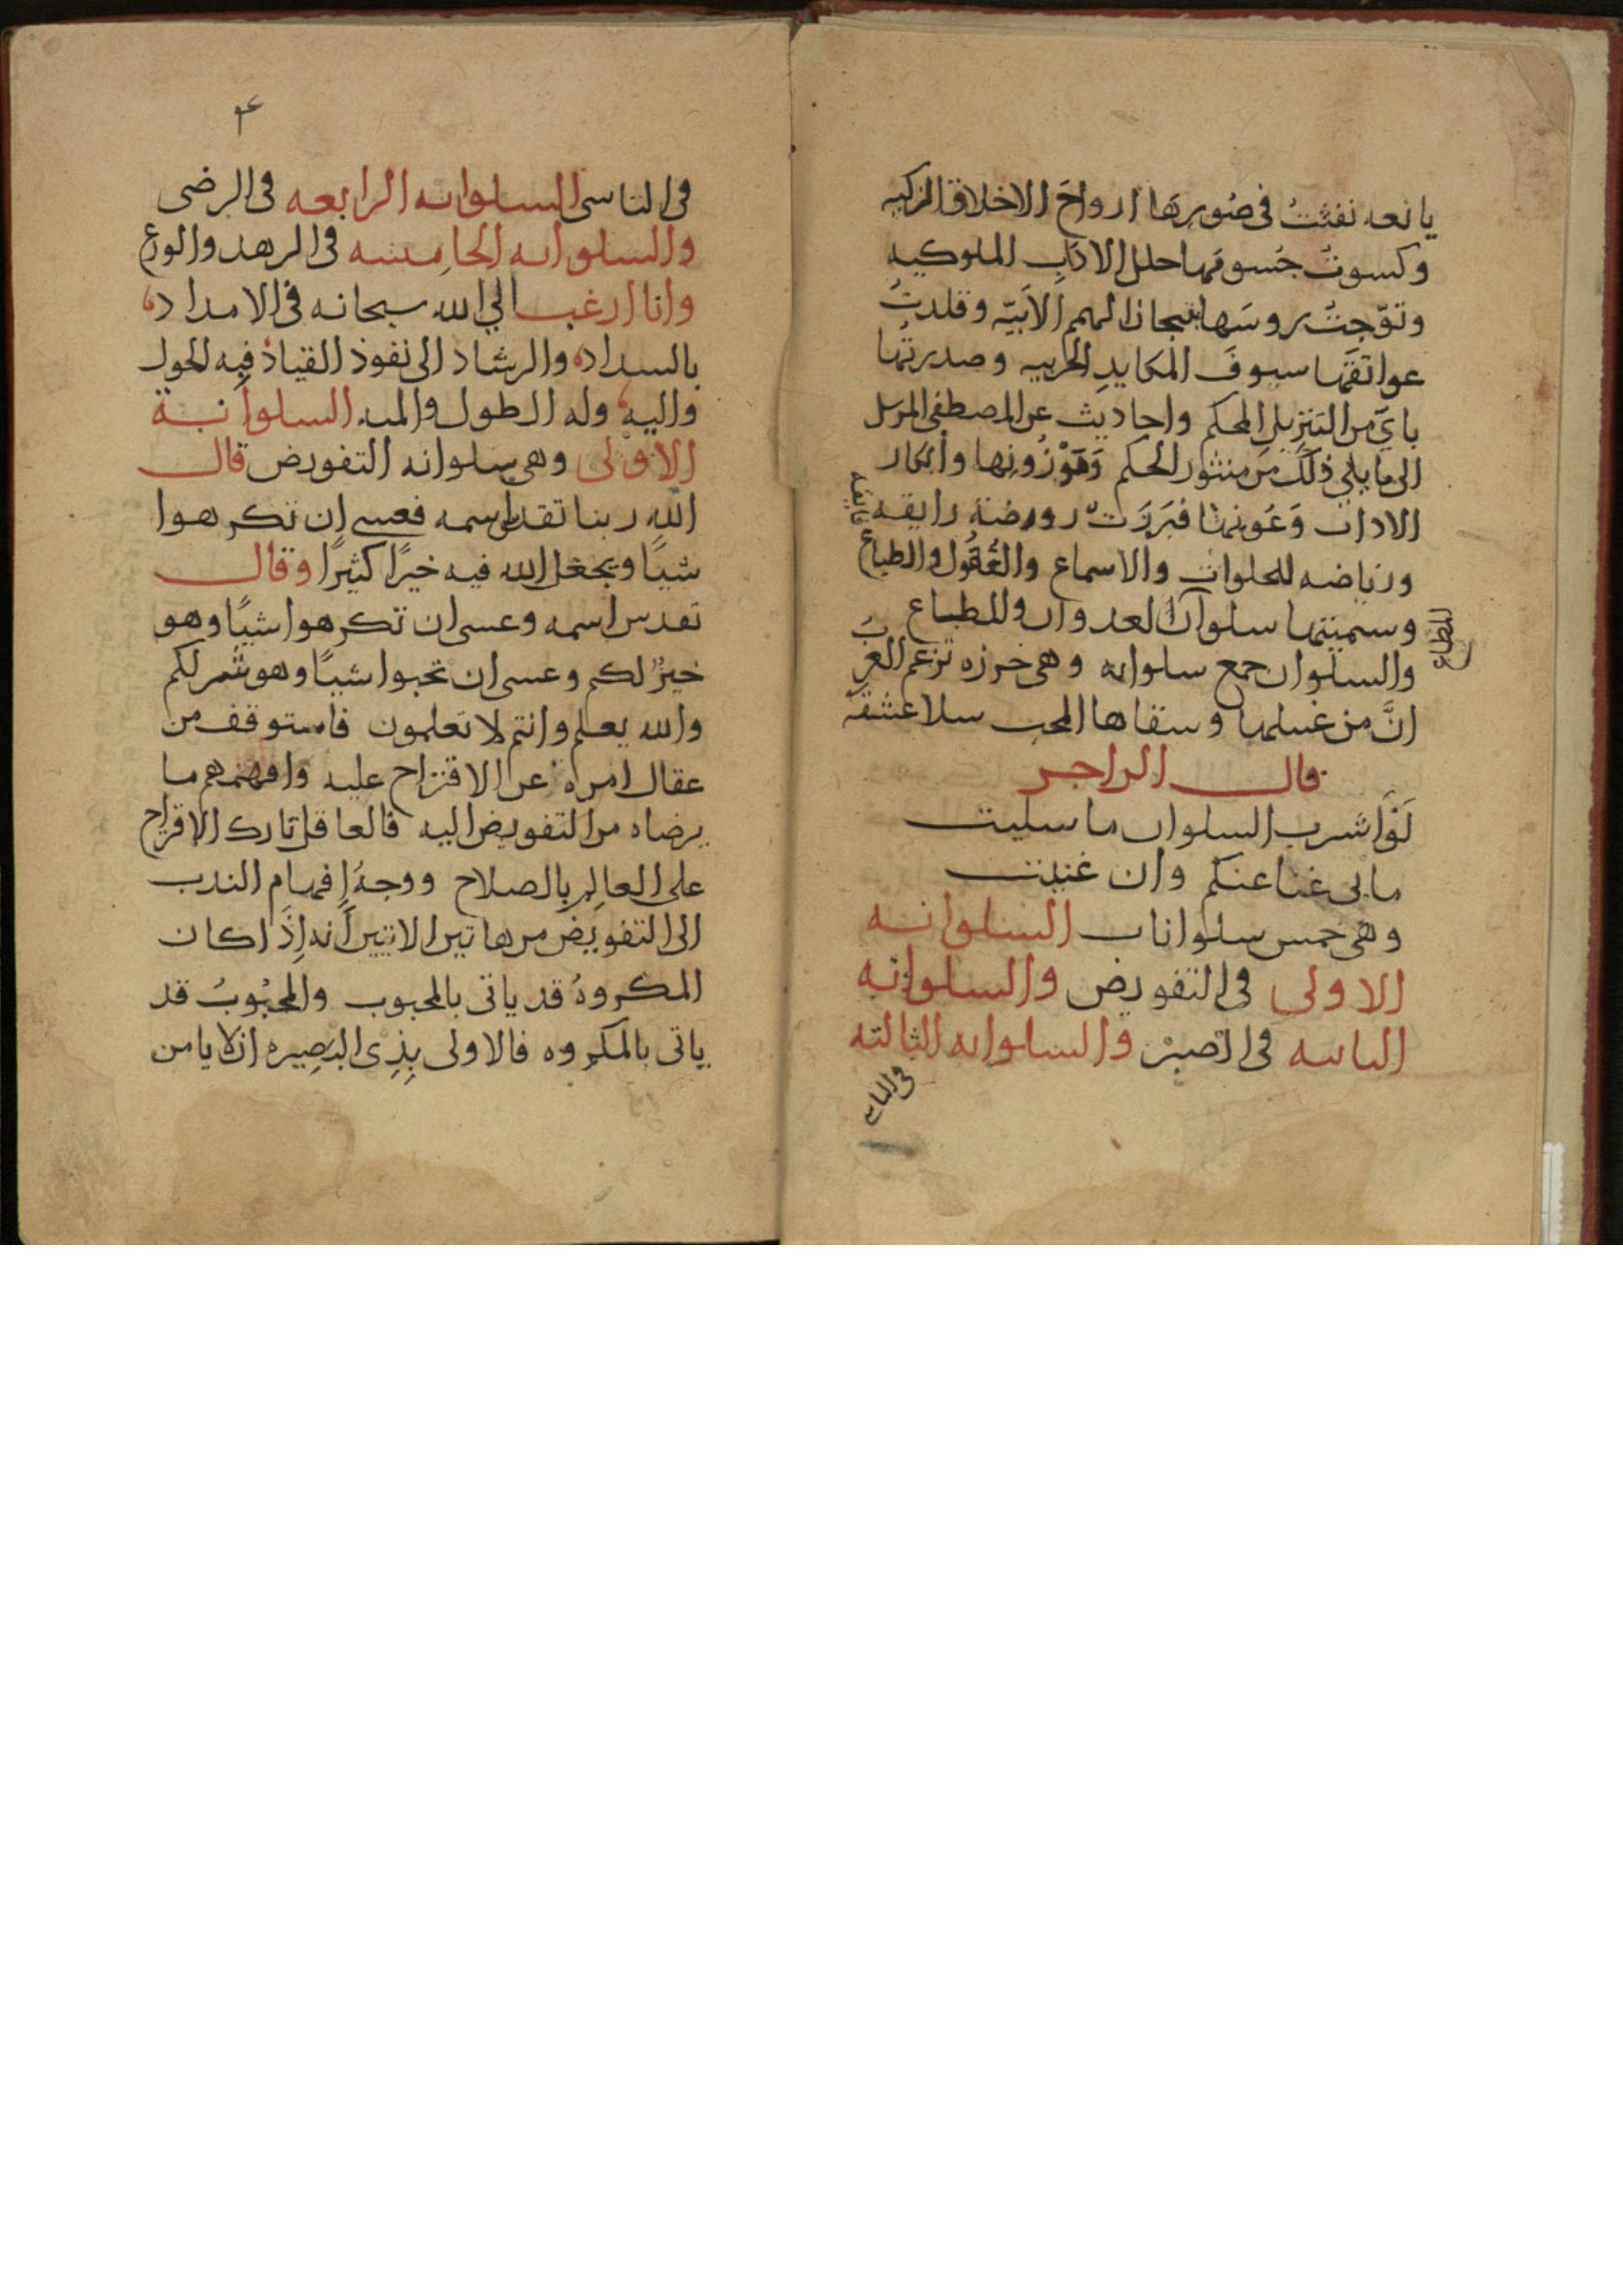 يانعه نفثتُ فى صُورِهَا ارواحَ الاخلاق الزكيه
وكسوتُ جُسومَها حلل الادَابِ الملوكيه
وتوّجتُ روسَها بتيجان الهمم الأبيّه وقلدتُ
عواتقَها سيوفَ المكايدِ الحربيه وصدرتُها
بآيٍ من التنزيل المحكم واحاديث عن المصطفى المرسل
الى ما يلى ذلك من منثور الحكم وَمَوْزُونِها وابكار
الاداب وَعُونها فبَرَزَت روضة رايقه
ورياضه للخلوات والاسماع والعُقُول والطباع
وسميتها سلوان العدوان والمطباع
للطباع
والسلوان جمع سلوانه وهى خرزه تزعم العربُ
انَّ من غسلها وسقاها المحب سلا عشقه
قال الراجز
لَوْ اشرب السلوان ما سليت
ما بى غنا عنكم وان غنيت
وهى خمس سلوانات السلوانه
الاولى فى التفويض والسلوانه
الثانيه فى الصبر والسلوانه الثالثه
فى التاسى
٣
فى التاسى السلوانه الرابعه فى الرضى
والسلوانه الخامسه فى الزهد والورع
وانا ارغب الى الله سبحانه فى الامداد
بالسداد والرشاد الى نفوذ القياد فبه الحول
واليه وله الطول والمنه السلوانة
الاولى وهى سلوانه التفويض قال
الله ربنا تقدس اسمه فعسى ان تكرهوا
شيًا ويجعل الله فيه خيرًا كثيرًا وقال
تقدس اسمه وعسى ان تكرهوا شيًا وهو
خيرٌ لكم وعسى ان تحبوا شيًا وهو شر لكم
والله يعلم وانتم لا تعلمون فاستوقف من
عقال امره عن الاقتراح عليه وافهمهم ما
يرضاه من التفويض اليه فالعاقل تارك الاقتراح
على العالِم بالصلاح ووجهُ إفهام الندب
الى التفويض من هاتين الايتين أنه إذا كان
المكروهُ قد ياتى بالمحبوب والمحبُوبُ قد
ياتى بالمكروه فالاولى بِذِى البَصِيره ان لا يامن